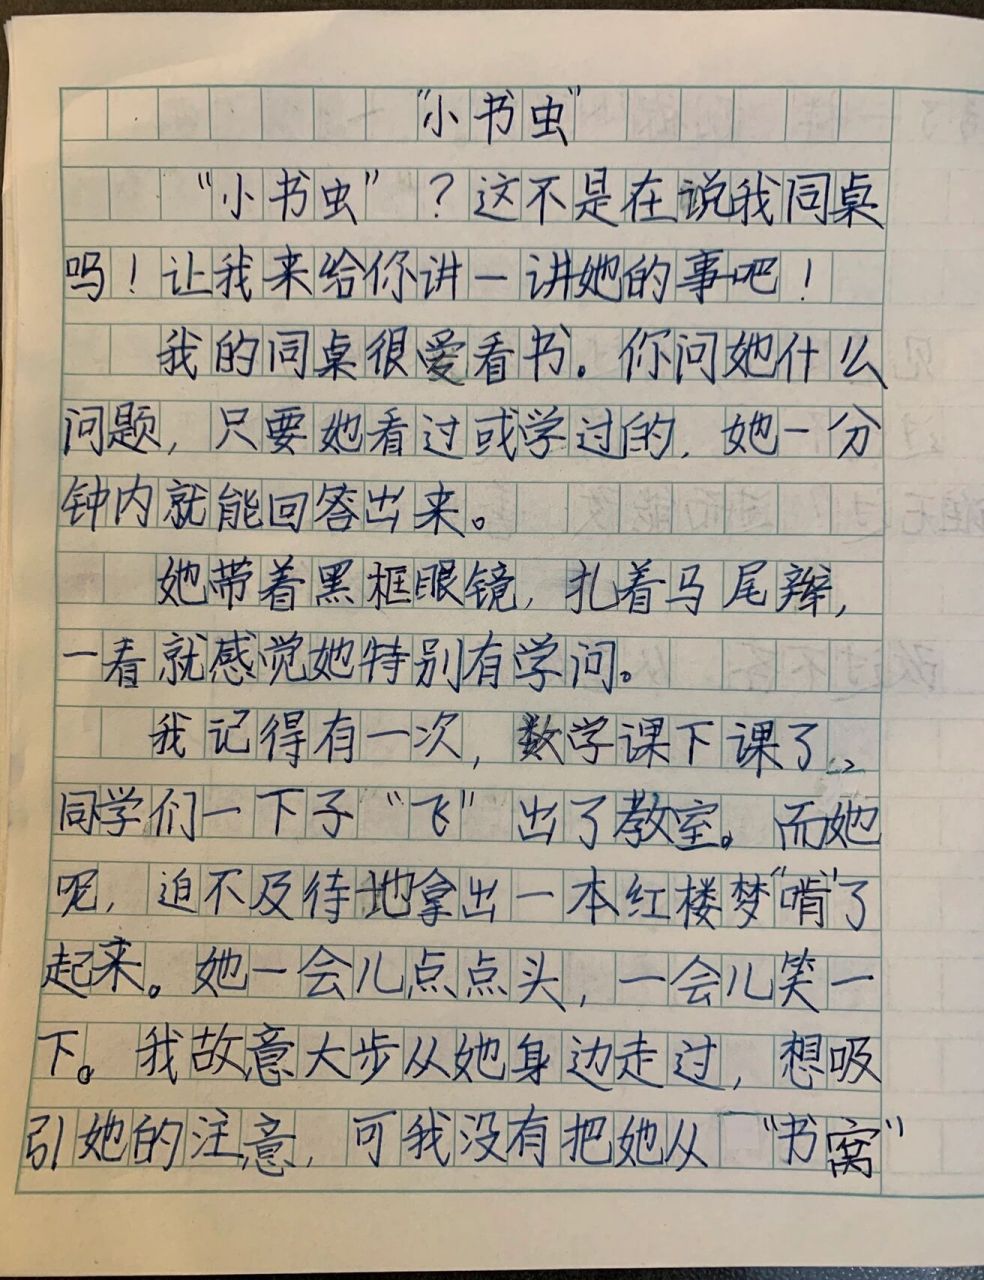 "小书虫"
"小书虫"？这不是在说我同桌
吗！让我来给你讲一讲她的事吧！
我的同桌很爱看书。你问她什么
问题，只要她看过或学过的，她一分
钟内就能回答出来。
她带着黑框眼镜，扎着马尾辫，
一看就感觉她特别有学问。
我记得有一次，数学课下课了，
同学们一下子"飞"出了教室。而她
呢，迫不及待地拿出一本红楼梦"啃"了
起来。她一会儿点点头，一会儿笑一
下。我故意大步从她身边走过，想吸
引她的注意，可我没有把她从"书窝"